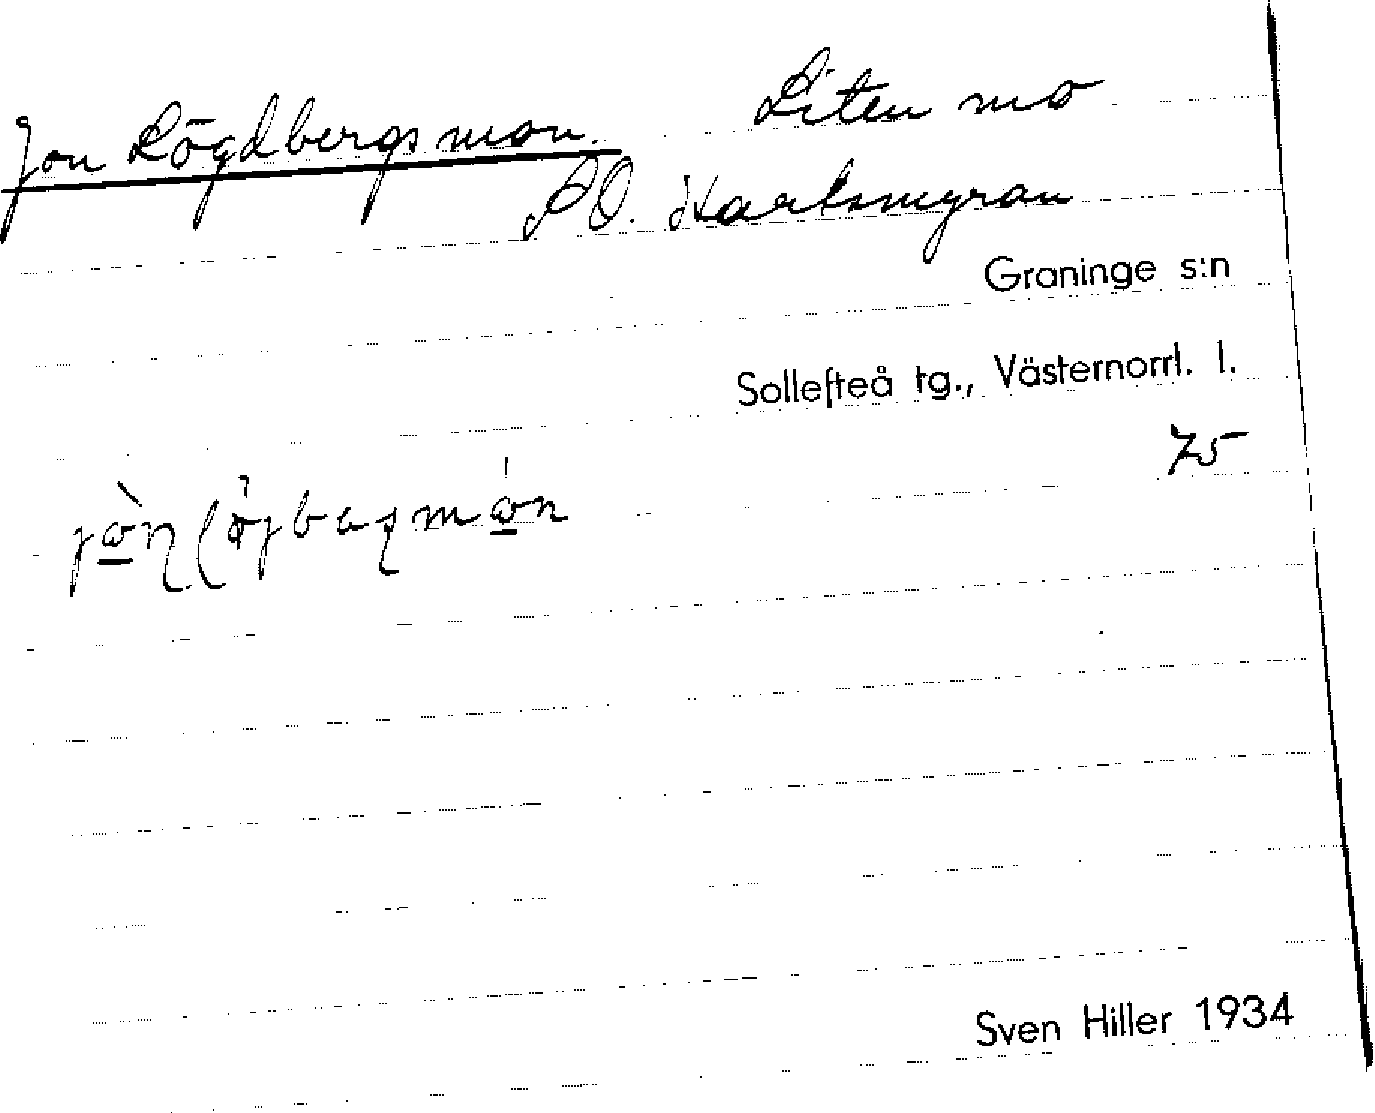 Jon Lögdbergsmon. Liten mo
SO. Karlsmyran
Graninge s:n
Sollefteå tg., Västernorrl. l.
75
Sven Hiller 1934